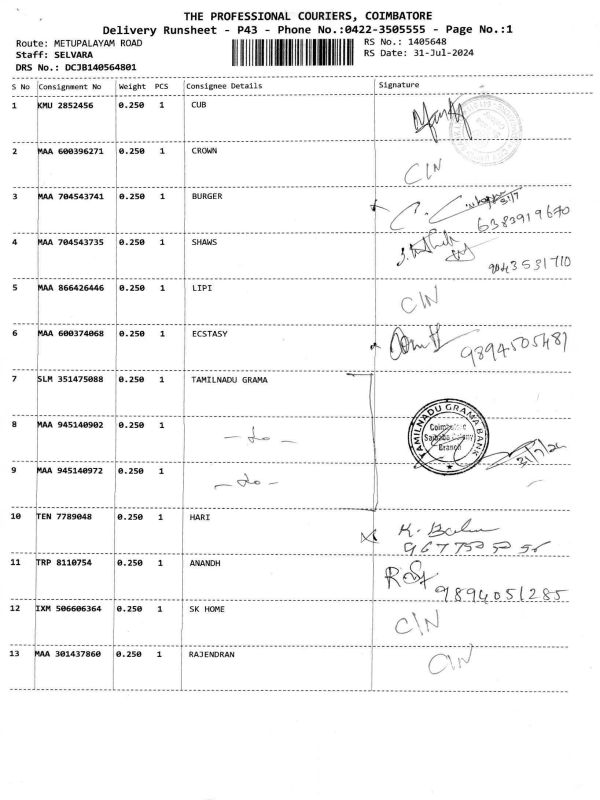 THE PROFESSIONAL COURIERS, COIMBATORE
Delivery Runsheet - P43 - Phone No.:0422-3505555 - Page No.:1
Route: METUPALAYAM ROAD
RS No.: 1405648
Staff: SELVARA
RS Date: 31-Jul-2024
DRS No.: DCJB140564801
S No Consignment No Weight PCS Consignee Details Signature
1 KMU 2852456 0.250 1 CUB
2 MAA 600396271 0.250 1 CROWN C/N
3 MAA 704543741 0.250 1 BURGER 31/7
6383919670
4 MAA 704543735 0.250 1 SHAWS
9043531710
5 MAA 866426446 0.250 1 LIPI C/N
6 MAA 600374068 0.250 1 ECSTASY 9894505481
7 SLM 351475088 0.250 1 TAMILNADU GRAMA
TAMILNADU GRAMA BANK
Coimbatore
Saibaba Colony
Branch
8 MAA 945140902 0.250 1 - do -
31/7/24
9 MAA 945140972 0.250 1 - do -
10 TEN 7789048 0.250 1 HARI
11 TRP 8110754 0.250 1 ANANDH
9894051285
12 IXM 506606364 0.250 1 SK HOME C/N
13 MAA 301437860 0.250 1 RAJENDRAN C/N